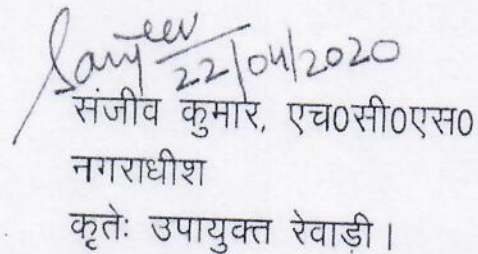 Sanjeev
22/04/2020
संजीव कुमार, एच0सी0एस0
नगराधीश
कृतेः उपायुक्त रेवाड़ी।